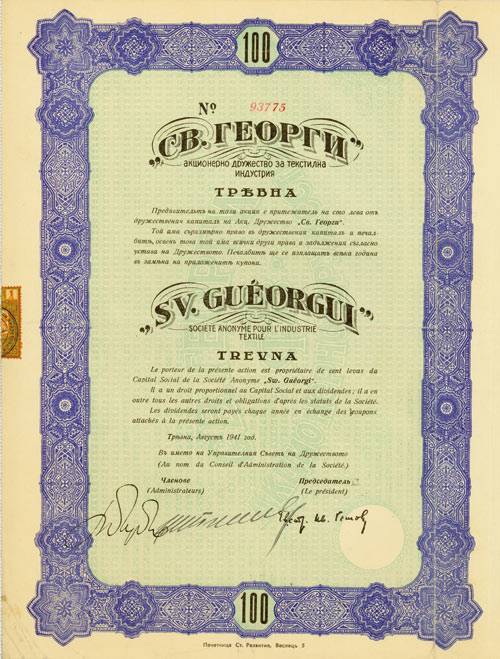 100
№ 93775
„СВ. ГЕОРГИ"
АКЦИОНЕРНО ДРУЖЕСТВО ЗА ТЕКСТИЛНА
ИНДУСТРИЯ
ТРѢВНА
Предявительтъ на тази акция е притежатель на сто лева отъ
дружествения капиталъ на Акц. Дружество „Св. Георги".
Той има съразмѣрно право въ дружествения капиталъ и печал-
битѣ, освенъ това той има всички други права и задължения съгласно
устава на Дружеството. Печалбитѣ ще се изплащатъ всѣка година
въ замѣна на приложенитѣ купони.
„SV. GUÉORGUI"
SOCIÉTÉ ANONYME POUR L'INDUSTRIE
TEXTILE
TREVNA
Le porteur de la présente action est propriétaire de cent levas du
Capital Social de la Société Anonyme „Sw. Guéorgi".
Il a un droit proportionnel au Capital Social et aux dividendes; il a en
outre tous les autres droits et obligations d'après les statuts de la Société.
Les dividendes seront payés chaque année en échange des coupons
attachés à la présente action.
Трѣвна, Августъ 1941 год.
Въ името на Управителния Съветъ на Дружеството
(Au nom du Conseil d'Administration de la Société.)
Членове Председатель
(Administrateurs) (Le président)
100
Печатница Ст. Развитие, Веслецъ 5